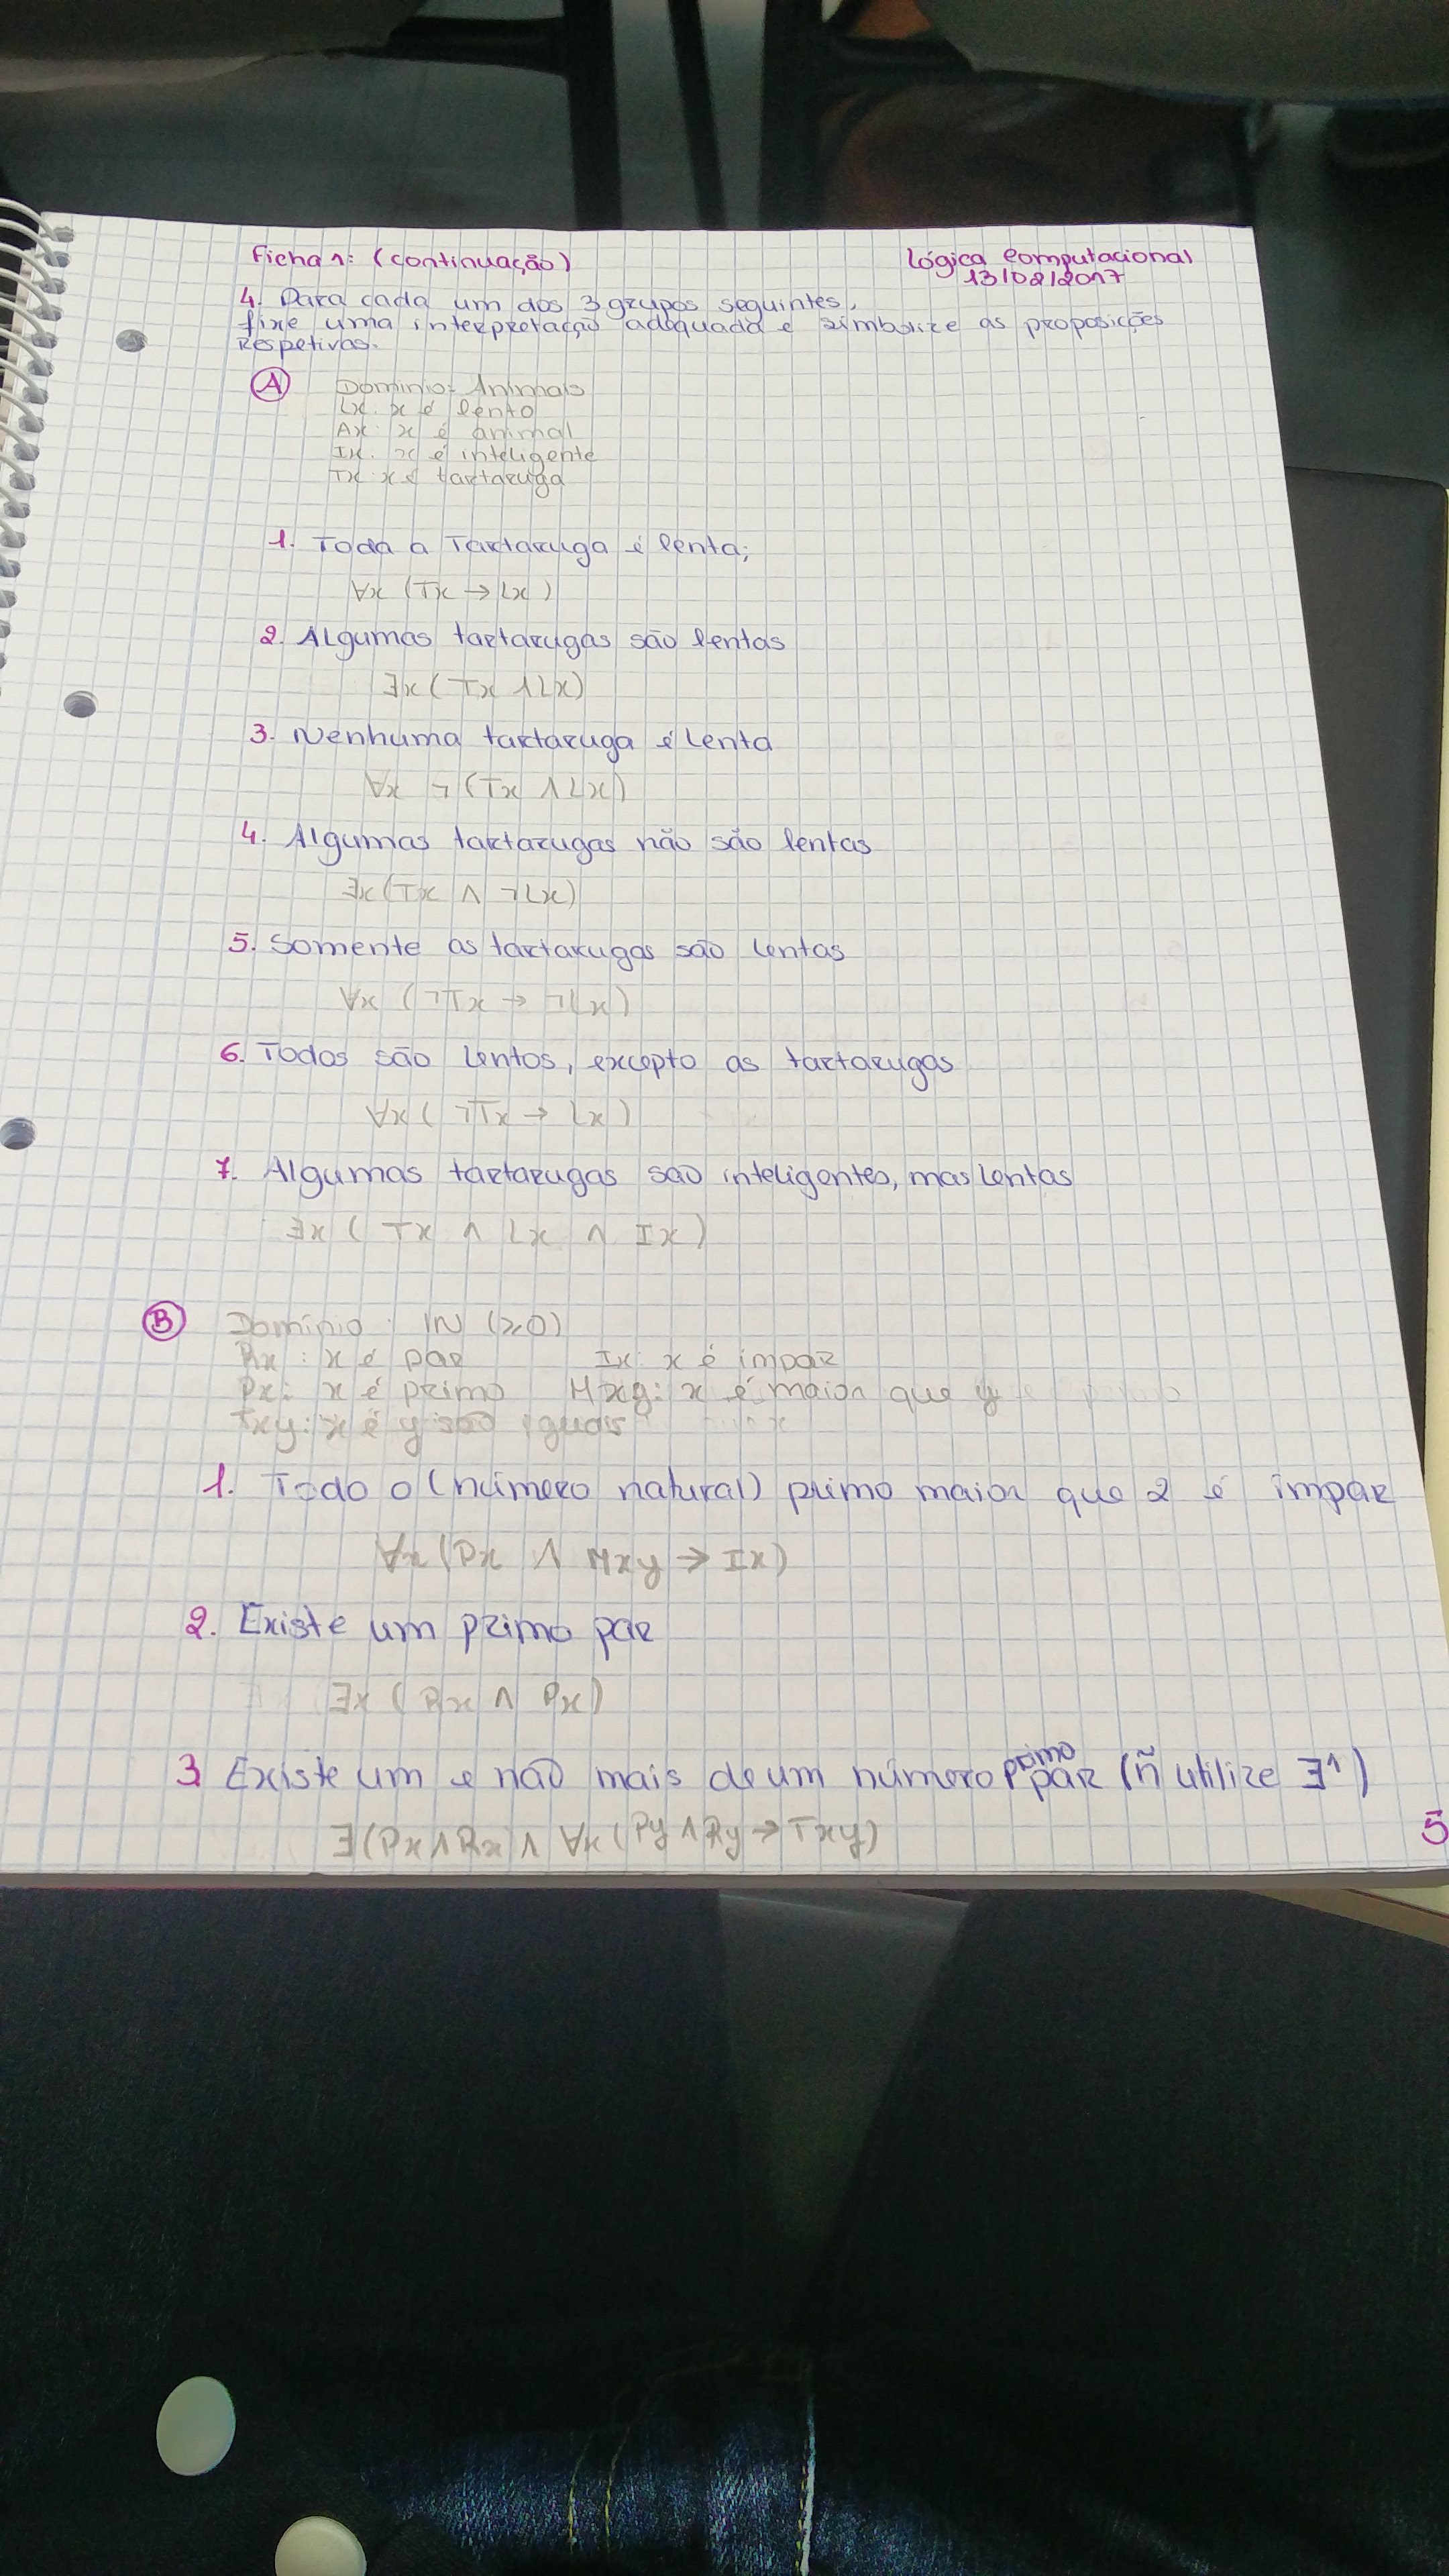 Ficha 1: (continuação)
Lógica Computacional
13/02/2017
4. Para cada um dos 3 grupos seguintes,
fixe uma interpretação adequada e simbolize as proposições
respetivas.
A Domínio: Animais
Lx: x é lento
Ax: x é animal
Ix: x é inteligente
Tx: x é tartaruga
1. Toda a Tartaruga é lenta;
∀x (Tx → Lx)
2. Algumas tartarugas são lentas
∃x (Tx ∧ Lx)
3. Nenhuma tartaruga é lenta
∀x ¬ (Tx ∧ Lx)
4. Algumas tartarugas não são lentas
∃x (Tx ∧ ¬Lx)
5. Somente as tartarugas são lentas
∀x (¬Tx → ¬Lx)
6. Todos são lentos, excepto as tartarugas
∀x (¬Tx → Lx)
7. Algumas tartarugas são inteligentes, mas lentas
∃x ( Tx ∧ Lx ∧ Ix )
B Domínio: IN (≥0)
Rx : x é par Ix: x é impar
Px: x é primo Mxy: x é maior que y
Txy: x é y são iguais
1. Todo o (número natural) primo maior que 2 é impar
∀x (Px ∧ Mxy → Ix)
2. Existe um primo par
∃x ( Rx ∧ Px )
3 Existe um e não mais de um número primo par (ñ utilize ∃¹)
∃(Px ∧ Rx) ∧ ∀x (Py ∧ Ry → Txy)
5